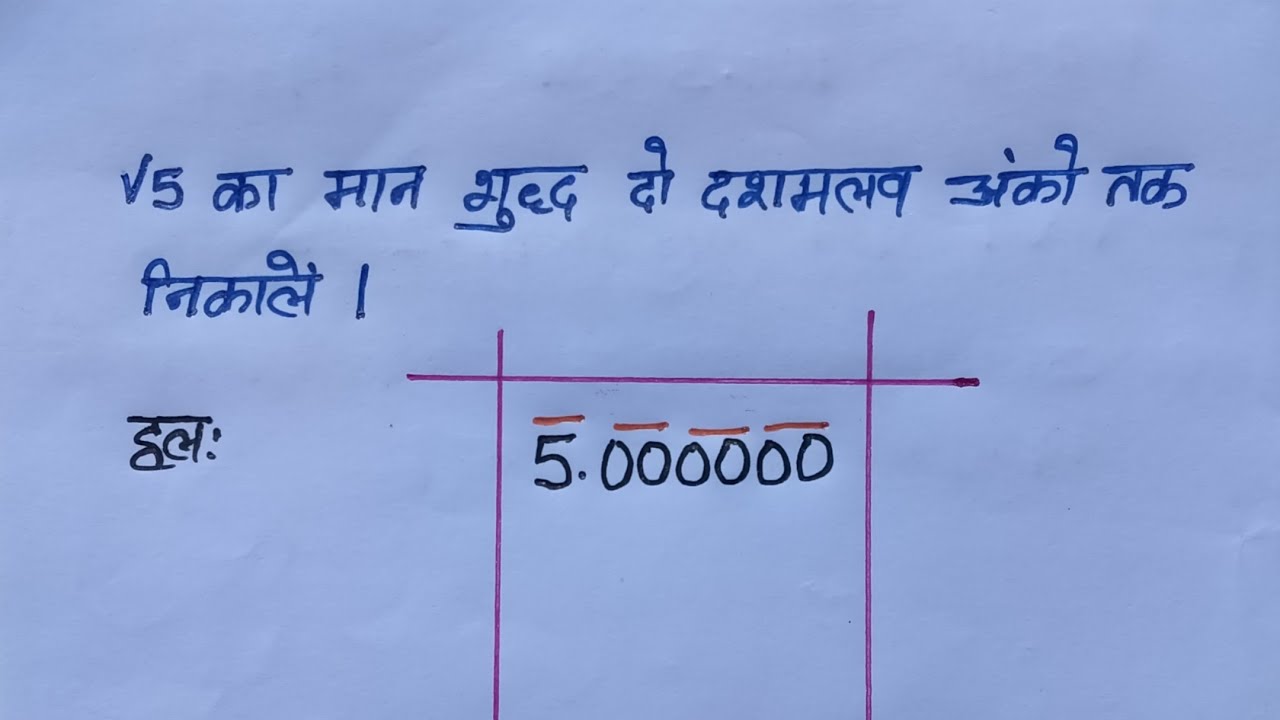 √5 का मान शुद्ध दो दशमलव अंको तक
निकालें ।
हलः
5.000000